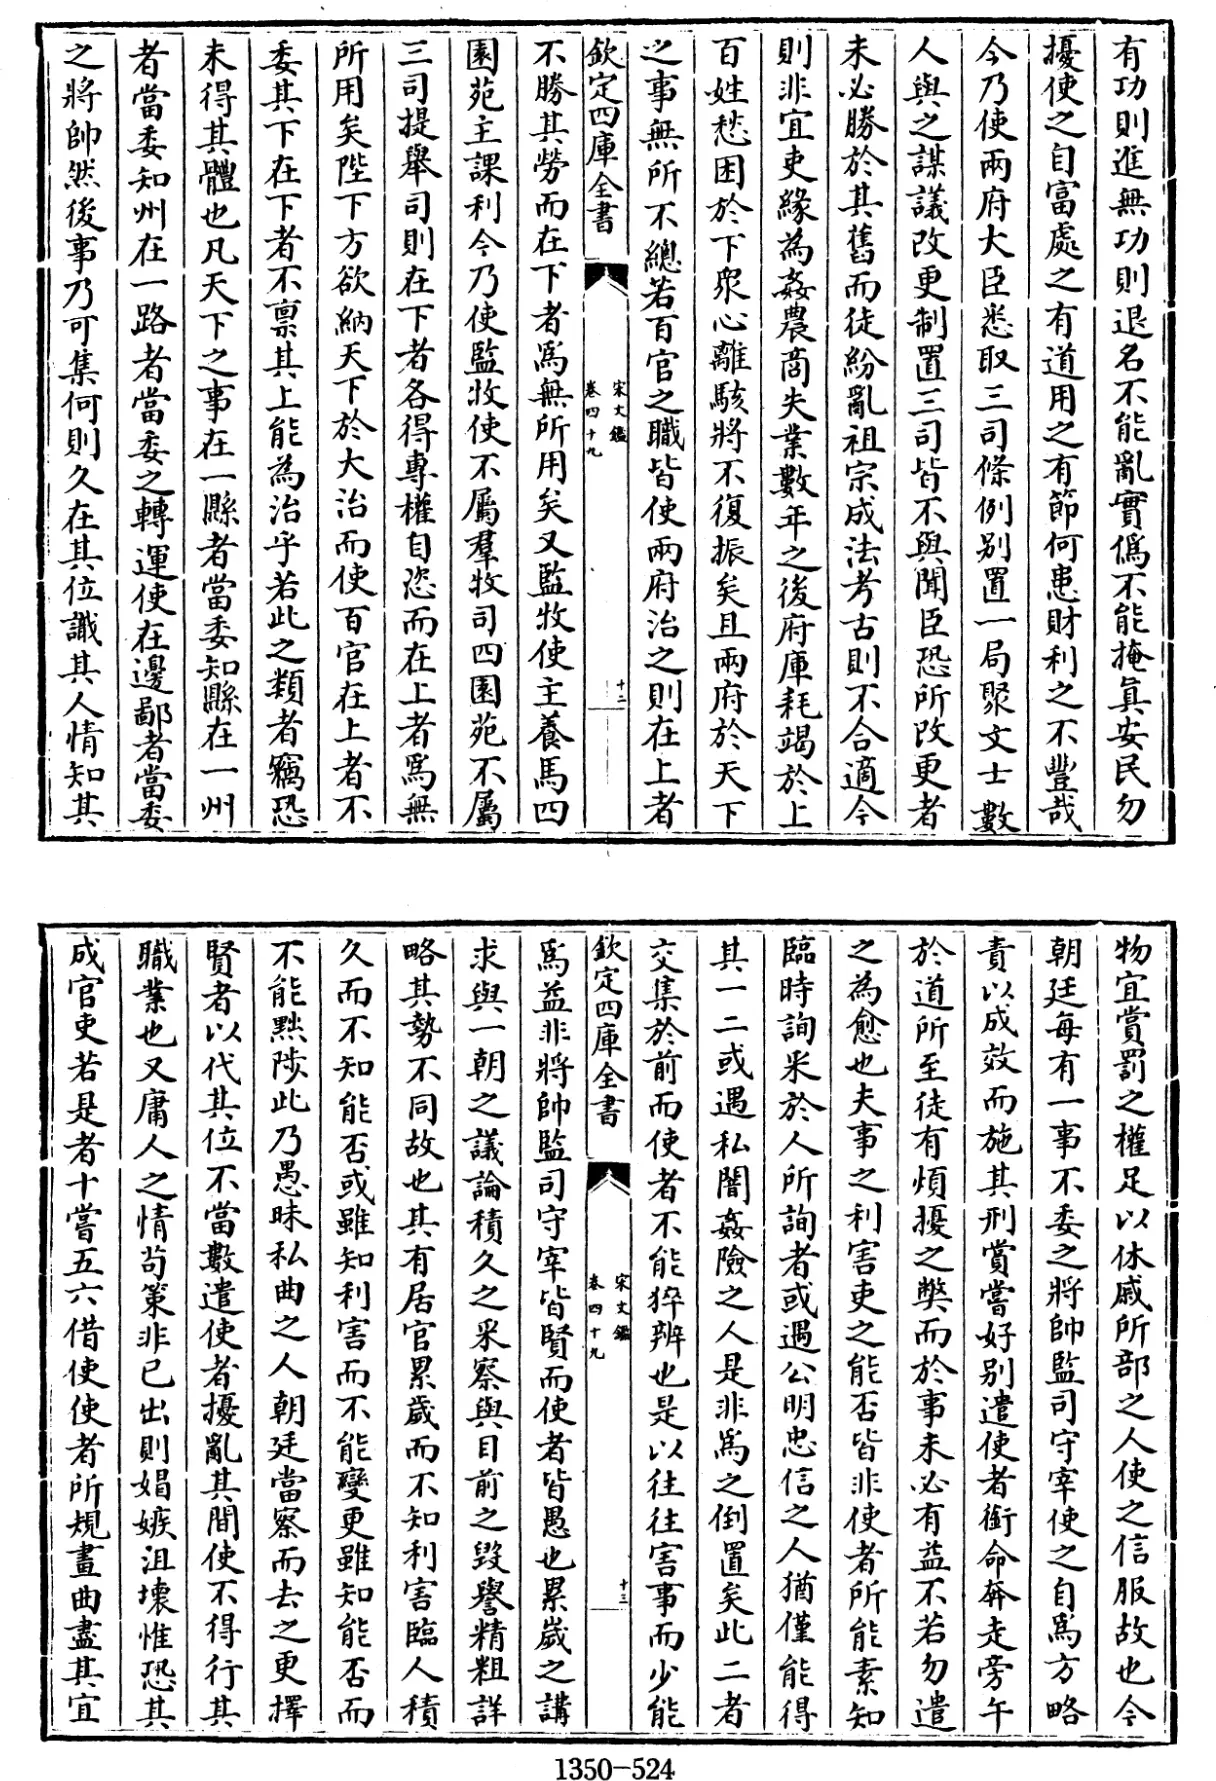 有功則進無功則退名不能亂實僞不能掩眞安民勿
擾使之自富處之有道用之有節何患財利之不豐哉
今乃使兩府大臣悉取三司條例别置一局聚文士數
人與之謀議改更制置三司皆不與聞臣恐所改更者
未必勝於其舊而徒紛亂祖宗成法考古則不合適今
則非宜吏緣為姦農商失業數年之後府庫耗竭於上
百姓愁困於下衆心離駭將不復振矣且兩府於天下
之事無所不總若百官之職皆使兩府治之則在上者
欽定四庫全書
宋文鑑
卷四十九
十二
不勝其勞而在下者爲無所用矣又監牧使主養馬四
園苑主課利今乃使監牧使不屬羣牧司四園苑不屬
三司提舉司則在下者各得專權自恣而在上者爲無
所用矣陛下方欲納天下於大治而使百官在上者不
委其下在下者不禀其上能為治乎若此之類者竊恐
未得其體也凡天下之事在一縣者當委知縣在一州
者當委知州在一路者當委之轉運使在邊鄙者當委
之將帥然後事乃可集何則久在其位識其人情知其
物宜賞罰之權足以休戚所部之人使之信服故也今
朝廷每有一事不委之將帥監司守宰使之自爲方略
責以成效而施其刑賞嘗好别遣使者銜命奔走旁午
於道所至徒有煩擾之弊而於事未必有益不若勿遣
之為愈也夫事之利害吏之能否皆非使者所能素知
臨時詢釆於人所詢者或遇公明忠信之人猶僅能得
其一二或遇私闇姦險之人是非爲之倒置矣此二者
交集於前而使者不能猝辨也是以往往害事而少能
欽定四庫全書
宋文鑑
卷四十九
十三
爲益非將帥監司守宰皆賢而使者皆愚也累歲之講
求與一朝之議論積久之采察與目前之毀譽精粗詳
略其勢不同故也其有居官累歲而不知利害臨人積
久而不知能否或雖知利害而不能變更雖知能否而
不能黜陟此乃愚昧私曲之人朝廷當察而去之更擇
賢者以代其位不當數遣使者擾亂其間使不得行其
職業也又庸人之情苟策非已出則媢嫉沮壞惟恐其
成官吏若是者十嘗五六借使使者所規畫曲盡其宜
1350-524